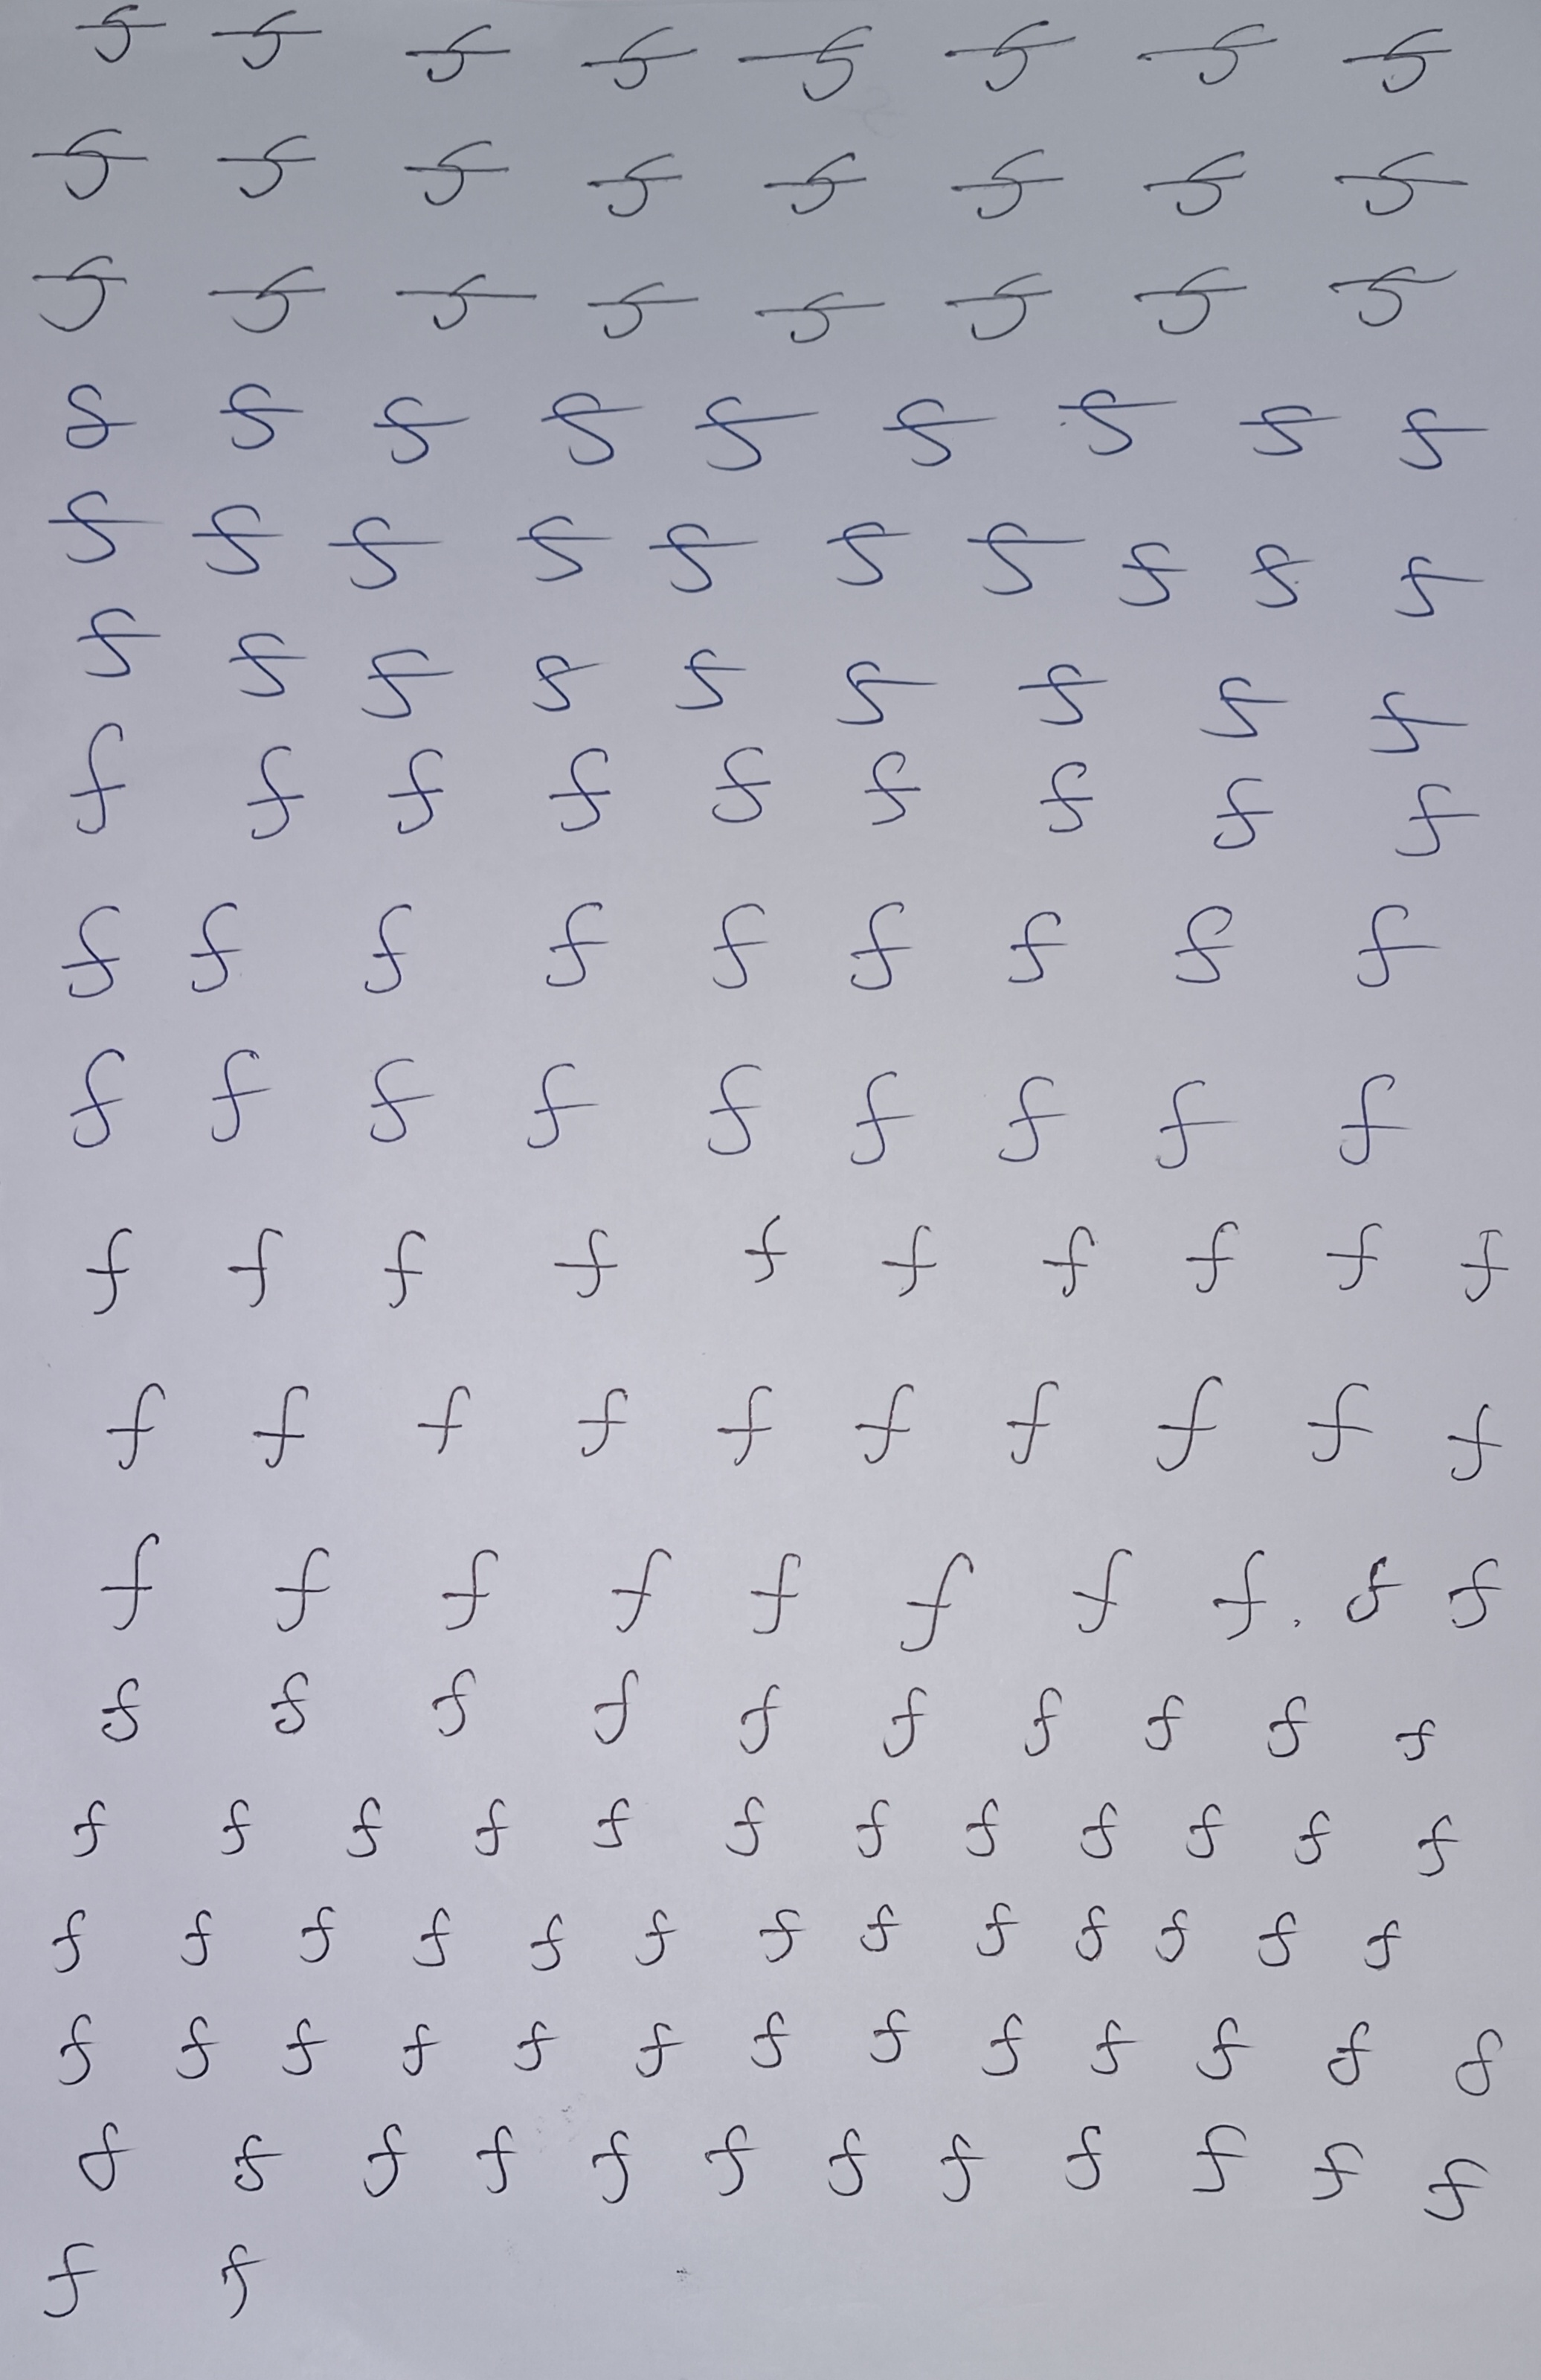 f f f f f f f f
f f f f f f f f
f f f f f f f f
f f f f f f f f f
f f f f f f f f f f
f f f f f f f f f
f f f f f f f f f
f f f f f f f f f
f f f f f f f f f
f f f f f f f f f f
f f f f f f f f f f
f f f f f f f f. f f
f f f f f f f f f f
f f f f f f f f f f f f
f f f f f f f f f f f f f
f f f f f f f f f f f f f
f f f f f f f f f f f f
f f